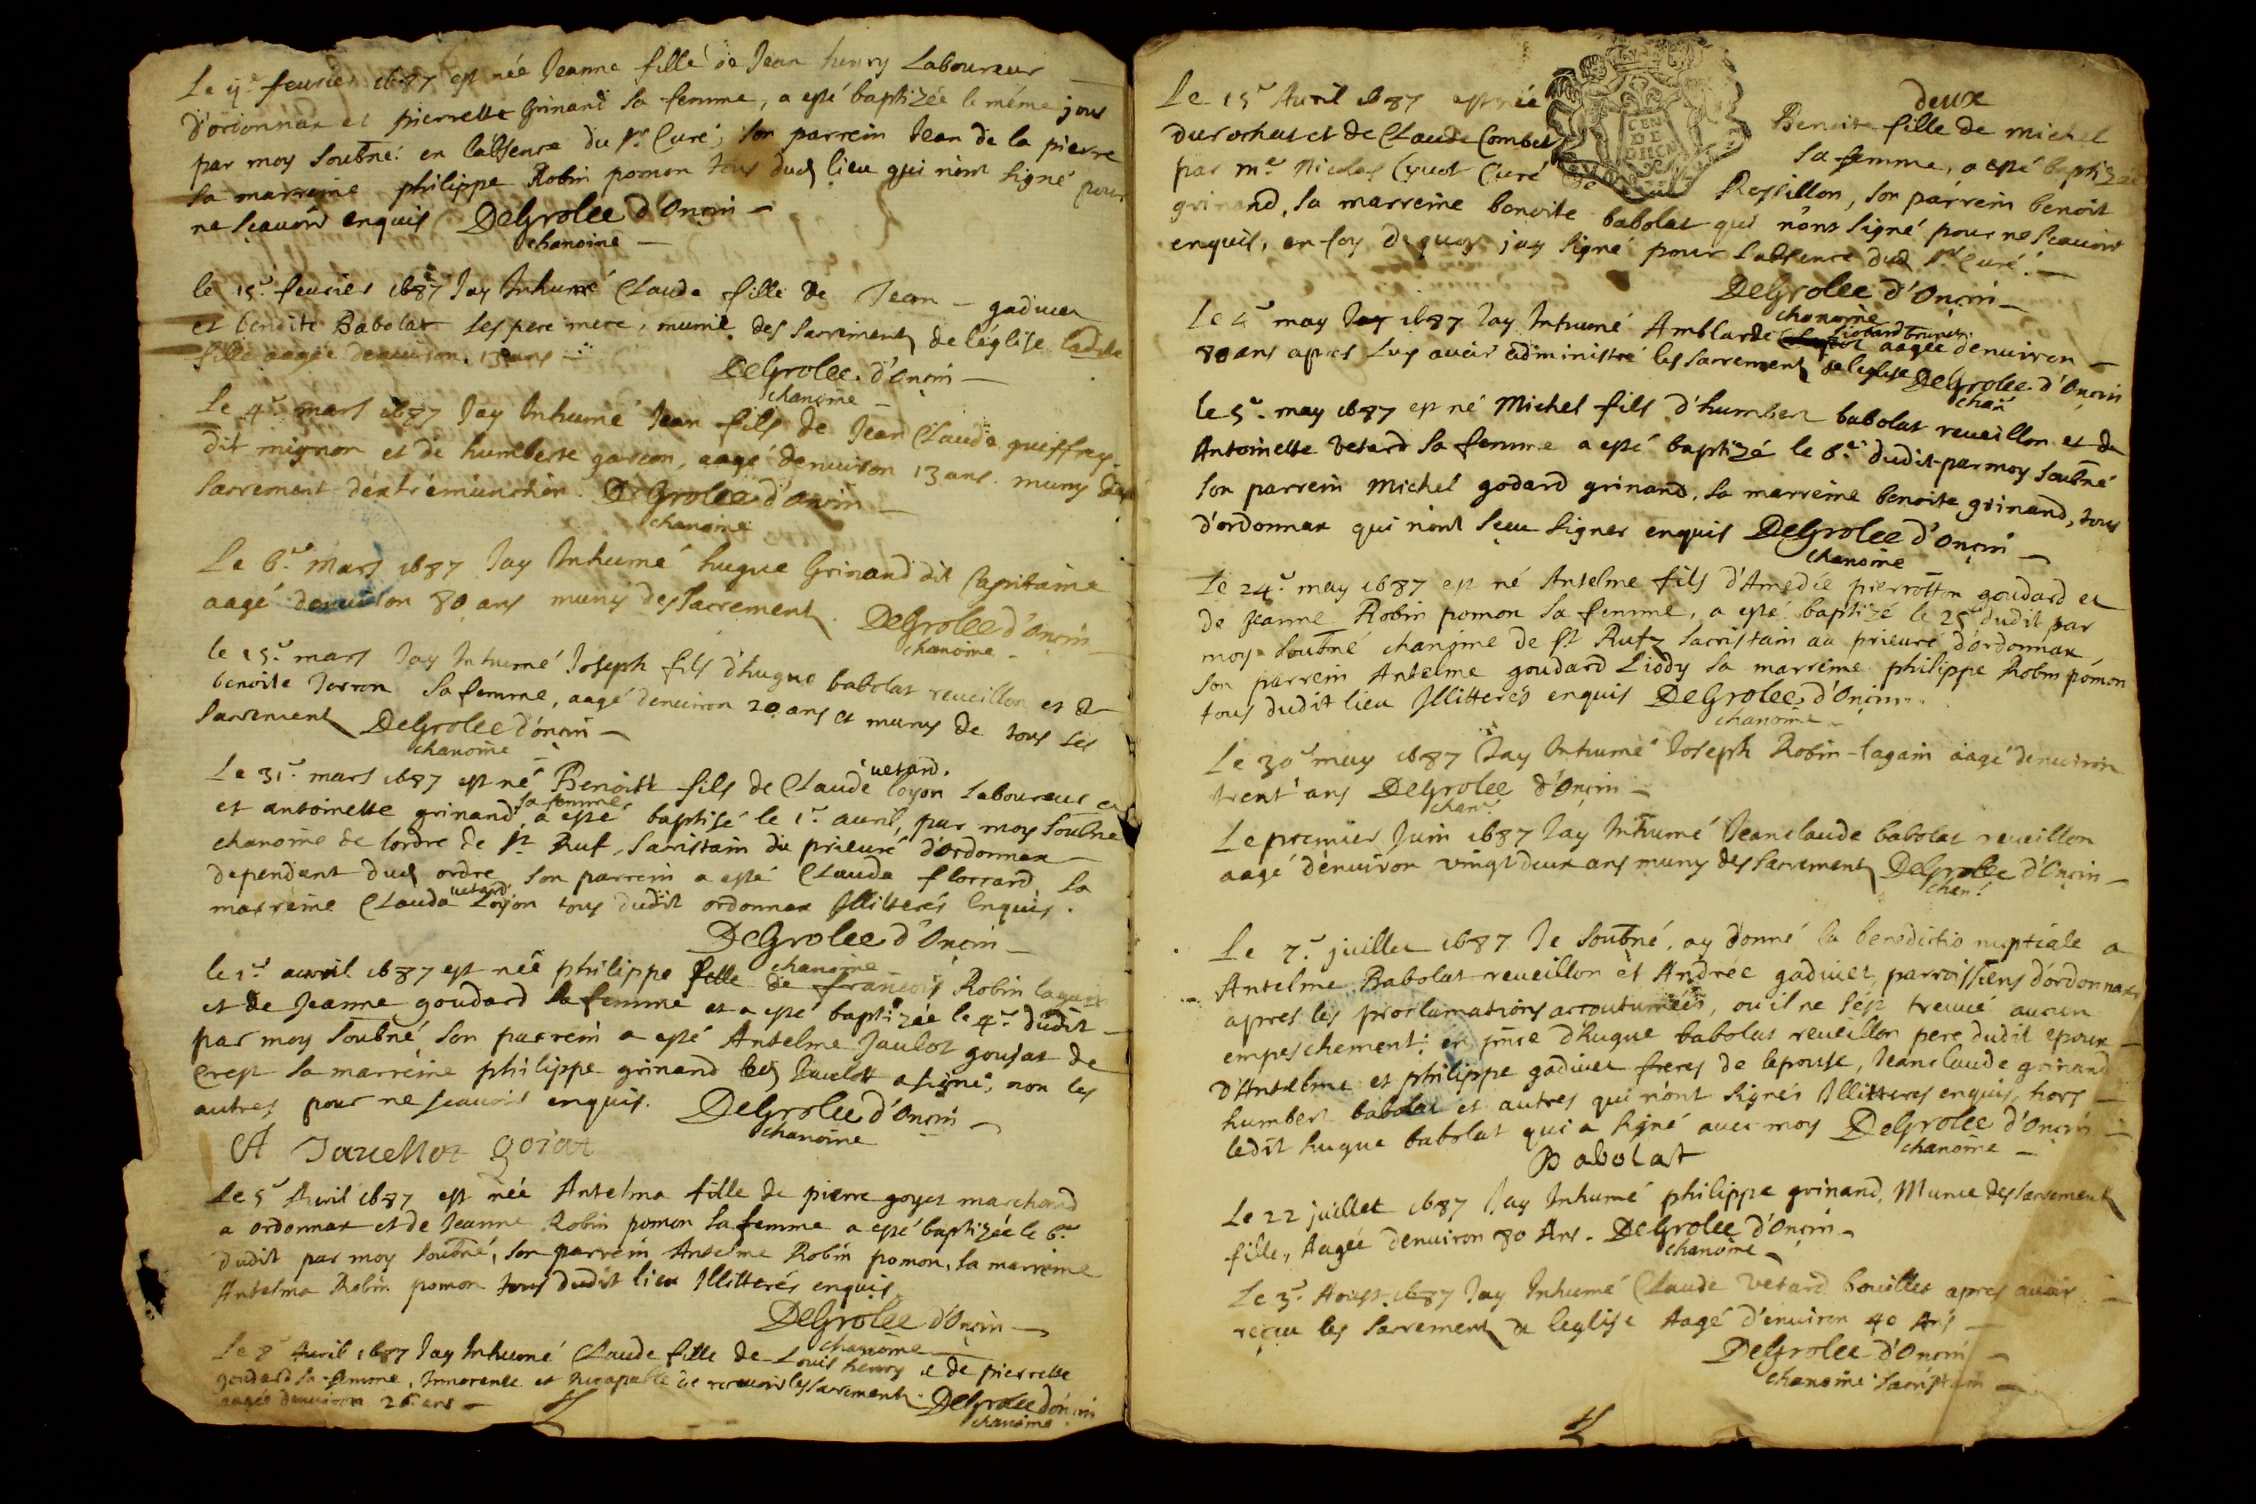 Le 4e feurier 1687 est née Jeanne fille de Jean henry Laboureur
d'ordonnax et pierrette Grinand sa femme, a esté baptizée le même jour
par moy soubné: en l'absence du sr Curé; son parrein Jean de la pierre
sa marreine philippe Robin pomon tous dud lieu qui n'ont signé pour
ne sçauoir enquis DeGrolee d'Oncin
chanoine
le 15e feurier 1687 Jay Inhumé Claude fille de Jean gadiuer
et benoite Babolat ses pere mere, munie des sacrements de l'église ladite
fille aagée denuiron 13 ans
DeGrolee d'Oncin
chanoine
Le 4e mars 1687 Jay Inhumé Jean fils de Jean Claude guiffrey
dit mignon et de humberte garcon, aagé denuiron 13 ans muny des
sacrement d'extrémiunction. DeGrolee d'Oncin
chanoine
Le 6e Mars 1687 Jay Inhumé hugue Grinand dit Capitaine
aagé denuiron 80 ans muny des sacrement DeGrolee d'Oncin
chanoine
le 15e mars Jay Inhumé Joseph fils d'hugue babolat reueillon et de
benoite Jorron sa femme, aagé denuiron 20 ans et muny de tous les
sacrement DeGrolee d'oncin
chanoine
Le 31e mars 1687 est né Benoist fils de Claude uetard loyon Laboureur
et antoinette grinand sa femme, a esté baptisé le 1e auril, par moy soubné
chanoine de lordre de st Ruf, sacristain du prieuré d'ordonnax
dependant dud ordre, son parrein a esté Claude floccard, sa
marreine Clauda uetard Loyon tous dudit ordonnax Illitterés Enquis.
DeGrolee d'Oncin
chanoine
le 1e auril 1687 est née philippe fille de francois Robin lagain
et de Jeanne goudard sa femme et a esté baptizée le 4e dudit
par moy soubné son parrein a esté Antelme Jaulot goujat de
Crept sa marreine philippe grinand led Jauelott a signé, non les
autres pour ne scauoir enquis. DeGrolee d'Oncin
chanoine
A Jauellot goiat
Le 5e Auril 1687 est née Antelma fille de pierre goyet marchand
a ordonnax et de Jeanne Robin pomon sa femme a esté baptizée le 6e
dudit par moy soubné, son parrein Antelme Robin pomon, sa marreine
Antelma Robin pomon tous dudit lieu Illitterés enquis
DeGrolee d'Oncin
chanoine
Le 8e Auril 1687 Jay Inhumé Claude fille de Louis henry et de pierrette
goudard sa femme, Innocente et Incapable de receuoir les sacrement
aagée denuiron 26 ans DeGrolee d'oncin
chanoine
deux
GEN DE DIION
Le 15e Auril 1687 est née Benoite fille de michel
durochat et de Claude Combet sa femme, a esté baptizée
par me Nicolas Guot Curé de Rossillon, son parrein benoit
grinand, sa marreine benoite babolat qui n'ont signé pour ne scauoir
enquis, en foy de quoy jay signé pour l'absence dud sr Curé.
DeGrolee d'Oncin
chanoine
Le 4e may 1687 Jay Inhumé Amblarde aagée denuiron
80 ans apres luy auoir administré les sacrement de l'eglise DeGrolee d'Oncin
chan
le 5e may 1687 est né Michel fils d'humbert babolat reueillon et de
Antoinette vetard sa femme a esté baptizé le 6e dudit par moy soubné
son parrein Michel godard grinand, sa marreine benoite grinand, tous
d'ordonnax qui n'ont sceu signer enquis DeGrolee d'Oncin
chanoine
Le 24e may 1687 est né Antelme fils d'Amedée pierrotton goudard et
de Jeanne Robin pomon sa femme, a esté baptizé le 25e dudit par
moy soubné chanoine de st Ruf, sacristain au prieuré d'ordonnax,
son parrein Antelme goudard Liddy sa marreine philippe Robin pomon
tous dudit lieu Illitterés enquis DeGrolee d'Oncin
chanoine
Le 30e may 1687 Jay Inhumé Joseph Robin-lagain aagé denuiron
trent'ans DeGrolee d'Oncin
chane
Le premier Juin 1687 Jay Inhumé Jeanclaude babolat reueillon
aagé d'enuiron vingtdeux ans muny des sacrement DeGrolee d'Oncin
chane
Le 7e juillet 1687 Je soubné, ay donné la benedictio nuptiale a
Antelme Babolat reueillon et Andrée gadiuet, parroissiens d'ordonnax
apres les proclamations accoutumées, ou il ne s'est treuué aucun
empeschement: en pnce d'hugue babolat reueillon pere dudit epoux
d'Antelme et philippe gadiuet freres de lepouse, Jeanclaude grinand
humbert babolat et autres qui n'ont signés Illitteres enquis, hors
ledit hugue babolat qui a signé auec moy DeGrolee d'Oncin
chanoine
Babolat
Le 22 juillet 1687 Jay Inhumé philippe grinand, Munie des sacrement
fille, Aagée denuiron 80 Ans. DeGrolee d'Oncin
chanoine
Le 3e Aoust 1687 Jay Inhumé Claude vetard bouillet apres auoir
reçeu les sacrement de leglise Aagé d'enuiron 40 Ans
DeGrolee d'Oncin
chanoine sacristain